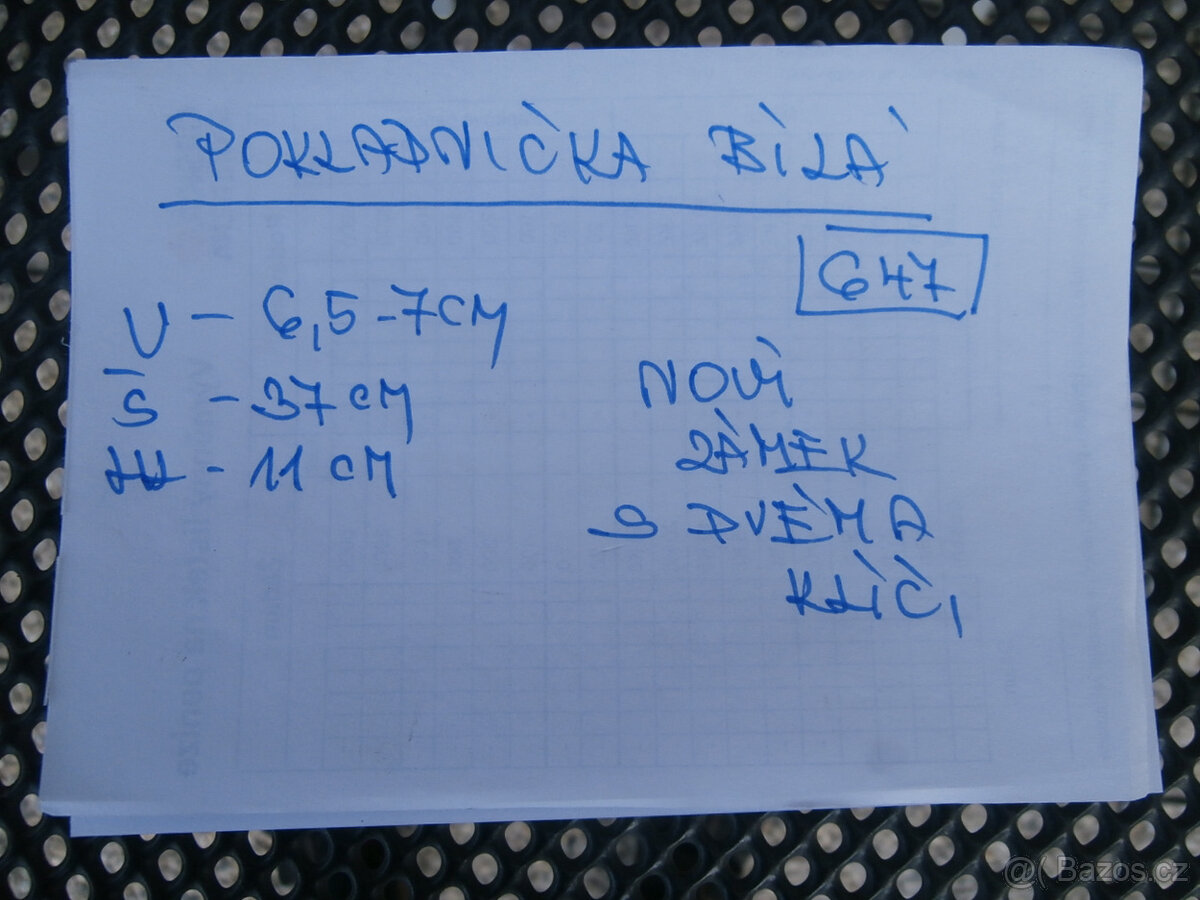 POKLADNIČKA BÍLÁ
647
V - 6,5-7CM
Š - 37 CM
- 11 CM
NOVÝ
ZÁMEK
S DVĚMA
KLÍČI
@( Bazos.cz